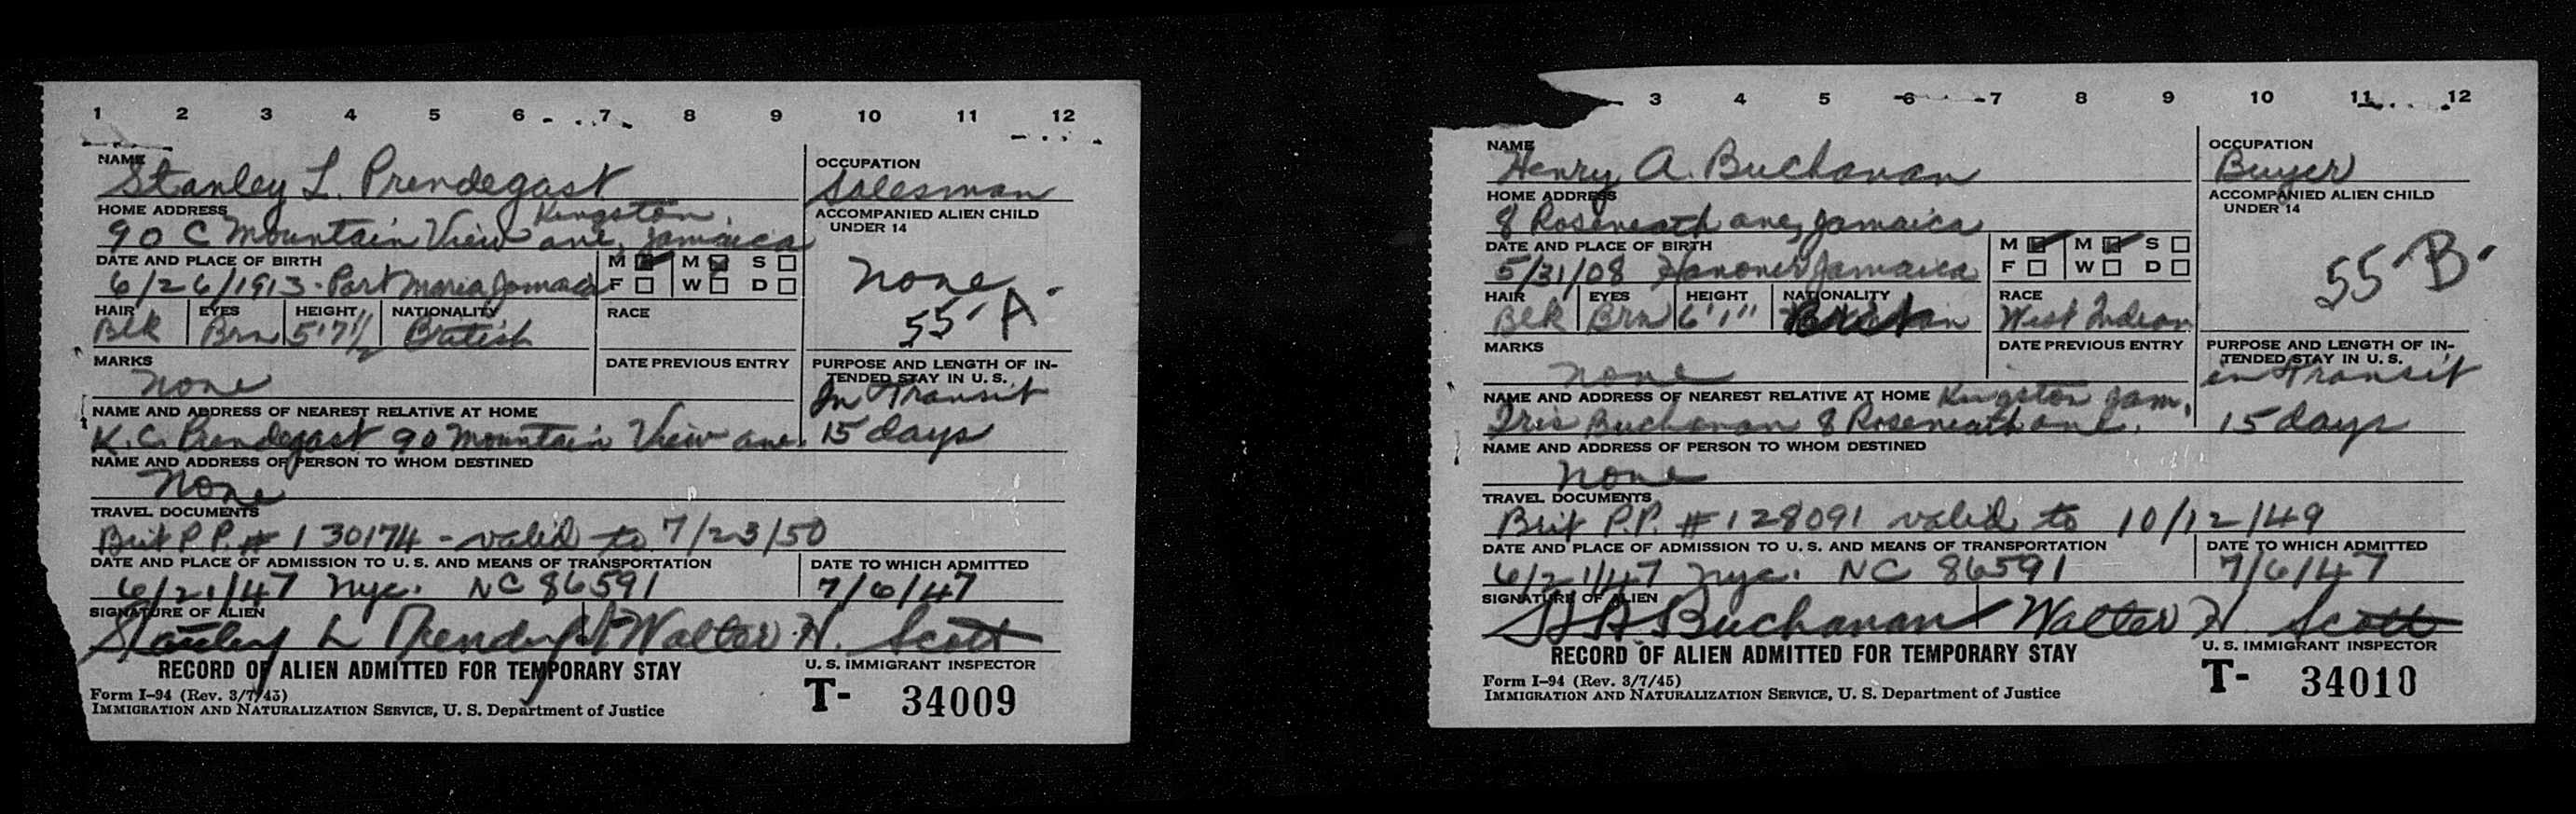 1 2 3 4 5 6 7 8 9 10 11 12
NAME
Stanley L. Prendegast
OCCUPATION
Salesman
HOME ADDRESS
Kingston,
90 C Mountain View ave, Jamaica
ACCOMPANIED ALIEN CHILD
UNDER 14
None
55-A
DATE AND PLACE OF BIRTH
6/26/1913 - Port Maria Jamaica
M M S
F W D
HAIR EYES HEIGHT NATIONALITY RACE
Blk Brn 5'7 1/2 British
MARKS
None
DATE PREVIOUS ENTRY
PURPOSE AND LENGTH OF IN-
TENDED STAY IN U. S.
In Transit
15 days
NAME AND ADDRESS OF NEAREST RELATIVE AT HOME
K.C. Prendegast 90 Mountain View ave.
NAME AND ADDRESS OF PERSON TO WHOM DESTINED
None
TRAVEL DOCUMENTS
Brit P.P. # 130174 - valid to 7/23/50
DATE AND PLACE OF ADMISSION TO U. S. AND MEANS OF TRANSPORTATION
6/21/47 nyc. NC 86591
DATE TO WHICH ADMITTED
7/6/47
SIGNATURE OF ALIEN
Stanley L Prendegast Walter H. Scott
RECORD OF ALIEN ADMITTED FOR TEMPORARY STAY
U. S. IMMIGRANT INSPECTOR
Form I-94 (Rev. 3/7/45)
IMMIGRATION AND NATURALIZATION SERVICE, U. S. Department of Justice
T- 34009
3 4 5 6 7 8 9 10 11 12
NAME
Henry A. Buchanan
OCCUPATION
Buyer
HOME ADDRESS
8 Roseneath ave, Jamaica
ACCOMPANIED ALIEN CHILD
UNDER 14
55-B
DATE AND PLACE OF BIRTH
5/31/08 Hanover Jamaica
M M S
F W D
HAIR EYES HEIGHT NATIONALITY RACE
Blk Brn 6'1" West Indian
MARKS
None
DATE PREVIOUS ENTRY
PURPOSE AND LENGTH OF IN-
TENDED STAY IN U. S.
in Transit
15 days
NAME AND ADDRESS OF NEAREST RELATIVE AT HOME Kingston Jam.
Iris Buchanan 8 Roseneath ave.
NAME AND ADDRESS OF PERSON TO WHOM DESTINED
None
TRAVEL DOCUMENTS
Brit P.P. # 128091 valid to 10/12/49
DATE AND PLACE OF ADMISSION TO U. S. AND MEANS OF TRANSPORTATION
6/21/47 nyc. NC 86591
DATE TO WHICH ADMITTED
7/6/47
SIGNATURE OF ALIEN
H A Buchanan Walter H. Scott
RECORD OF ALIEN ADMITTED FOR TEMPORARY STAY
U. S. IMMIGRANT INSPECTOR
Form I-94 (Rev. 3/7/45)
IMMIGRATION AND NATURALIZATION SERVICE, U. S. Department of Justice
T- 34010